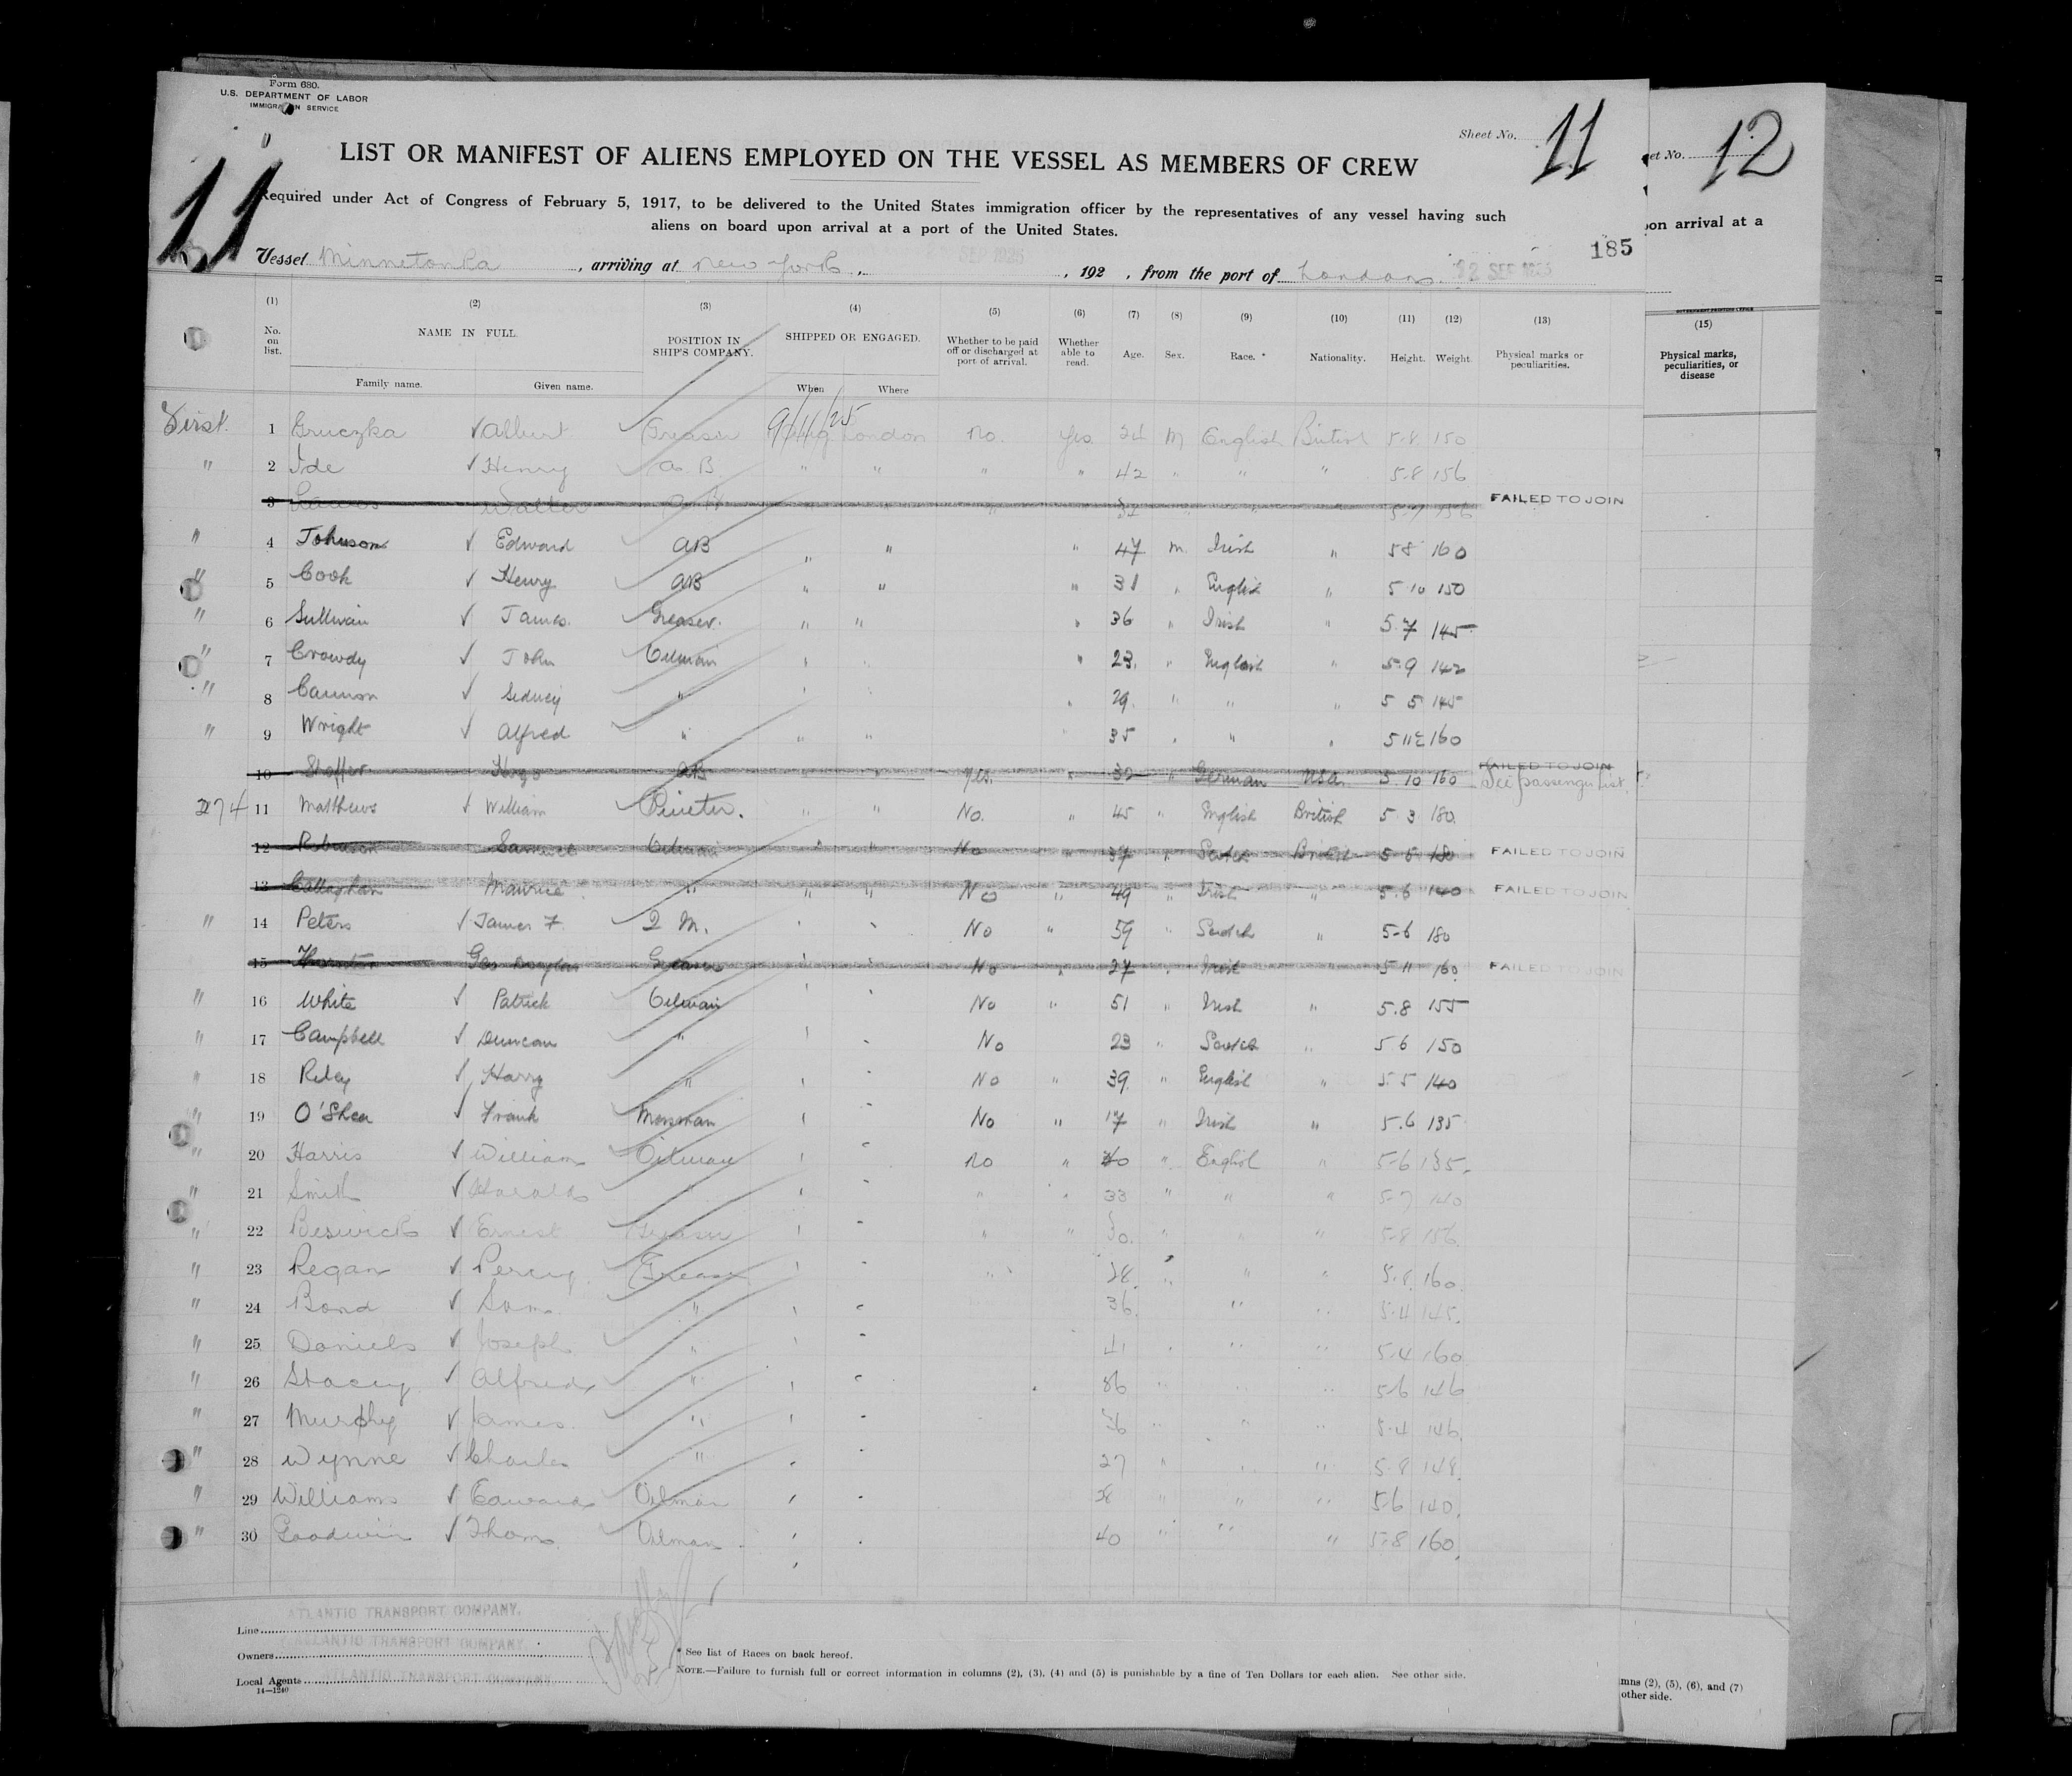 Form 680.
U.S. DEPARTMENT OF LABOR
IMMIGRATION SERVICE
Sheet No. 11
et No. 12
11
LIST OR MANIFEST OF ALIENS EMPLOYED ON THE VESSEL AS MEMBERS OF CREW
Required under Act of Congress of February 5, 1917, to be delivered to the United States immigration officer by the representatives of any vessel having such
aliens on board upon arrival at a port of the United States.
pon arrival at a
185
Vessel Minnetonka, arriving at New York, , 192 , from the port of London. 12 SEP 1925
(1) (2) (3) (4) (5) (6) (7) (8) (9) (10) (11) (12) (13) (15)
No. on list. NAME IN FULL POSITION IN SHIP'S COMPANY. SHIPPED OR ENGAGED. Whether to be paid off or discharged at port of arrival. Whether able to read. Age. Sex. Race. * Nationality. Height. Weight. Physical marks or peculiarities. Physical marks, peculiarities, or disease
Family name. Given name. When Where
First. 1 Gruczka ✓ Albert Greaser 9/11/25 London No. Yes. 24 M English British 5.8 150
" 2 Ide ✓ Henry A.B " " " " 42 " " " 5.8 156
3 Walter FAILED TO JOIN
" 4 Johnson ✓ Edward AB " " " 47 m. Irish " 5 8 160
" 5 Cook ✓ Henry AB " " " 31 " English " 5 10 150
" 6 Sullivan ✓ James. Greaser. " " " 36 " Irish " 5.7 145
" 7 Crowdy ✓ John Oilman " " " 23. " English 5.9 142
" 8 Cannon ✓ Sidney " " " " 29. " " " 5 5 145
" 9 Wright ✓ Alfred " " " " 35 " " " 5 11½ 160
10 Hugo AB " " Yes. " 32 " German USA 5.10 160 FAILED TO JOIN See passenger List.
274 11 Matthews ✓ William " " No. " 45 " English British 5 3 180.
12 Robinson Samuel Oilman " " No " 37 " Scotch British 5 8 180 FAILED TO JOIN
13 Callaghan Maurice " " " No " 49 " Irish " 5.6 140 FAILED TO JOIN
" 14 Peters ✓ James F. Q M. No " 59 " Scotch " 5-6 180
15 Thornton Geo Douglas Greaser No " 27 " Irish " 5 11 160 FAILED TO JOIN
" 16 White ✓ Patrick Oilman No " 51 " Irish " 5.8 155
" 17 Campbell ✓ Duncan " No 23 " Scotch " 5 6 150
" 18 Riley ✓ Harry " No " 39 " English " 5 5 140
" 19 O'Shea ✓ Frank Messman No " 17 " Irish " 5.6 135
" 20 Harris ✓ William Oilman No " 40 " English " 5-6 135.
" 21 Smith ✓ Harold " " " 33 " " " 5-7 140
" 22 Beswick ✓ Ernest Greaser " " 30. " " " 5-8 156.
" 23 Regan ✓ Percy Greaser " 28. " " " 5.8 160.
" 24 Bond ✓ Sam. " 36. " " 5.4 145.
" 25 Daniels ✓ Joseph " 41 " " 5.4 160
" 26 Stacey ✓ Alfred " 36 " " 5-6 146
" 27 Murphy ✓ James. " " " 5.4 146.
" 28 Wynne ✓ Charles " 27 " " " 5.8 148.
" 29 Williams ✓ Edward Oilman 28 " " " 5-6 140.
" 30 Goodwin ✓ Thom. Oilman 40 " " " 5-8 160.
Line ATLANTIC TRANSPORT COMPANY.
Owners ATLANTIC TRANSPORT COMPANY.
Local Agents ATLANTIC TRANSPORT COMPANY
14—1240
* See list of Races on back hereof.
NOTE.—Failure to furnish full or correct information in columns (2), (3), (4) and (5) is punishable by a fine of Ten Dollars for each alien. See other side.
mns (2), (5), (6), and (7)
other side.